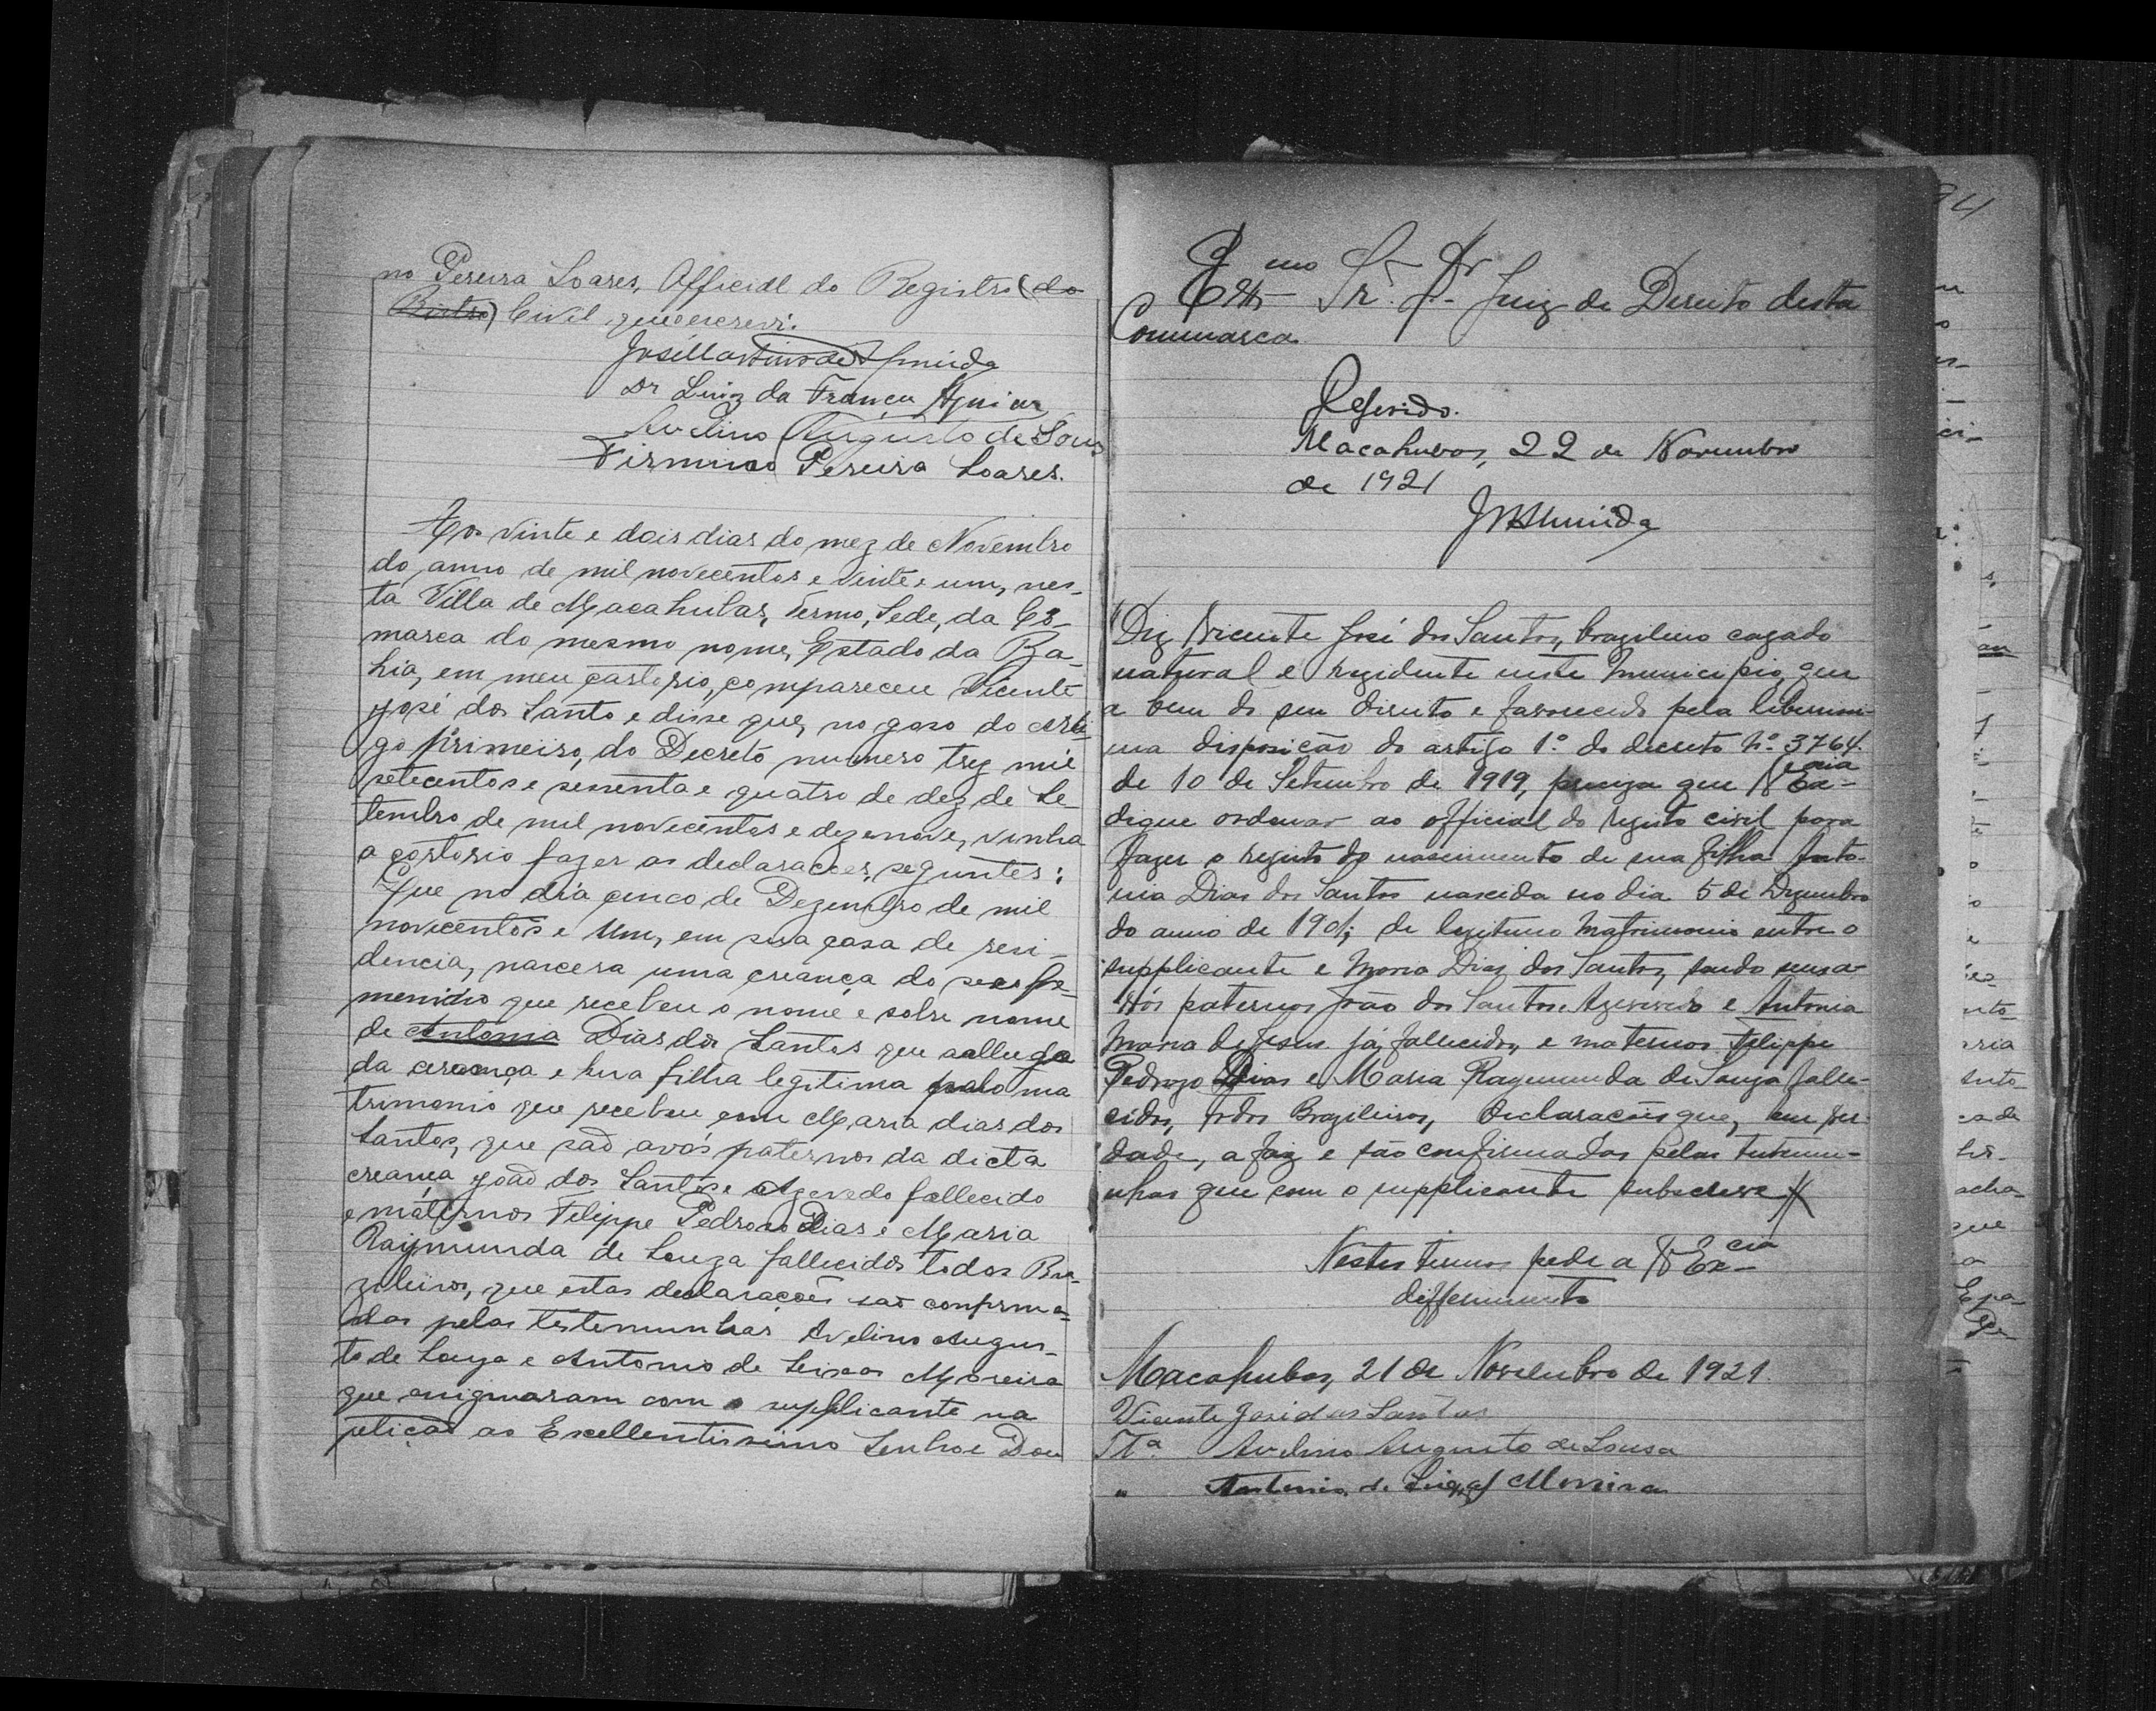 no Pereira Soares, Officidl do Registro (do
Bistro) Civil que escrevi.
José Martins de Almeida
Dr Luiz da França Aguiar
Avelino Augusto de Sousa
Firmino Pereira Soares.
Aos vinte e dois dias do mez de Novembro
do anno de mil novecentos e vinte e um, nes-
ta Villa de Macahubas, Termo, Sede, da Co-
marca do mesmo nome, Estado da Ba-
hia, em meu cartorio, compareceu Vicente
José dos Santo e disse que, no goso do arti-
go primeiro, do Decreto numero trez mil
setecentos e sessenta e quatro de dez de Se-
tembro de mil novecentos e dezenove, vinha
a cartorio fazer as declarações, seguntes:
Que no dia cinco de Dezembro de mil
novecentos e um, em sua casa de resi-
dencia, nascera uma creança do sexo fe-
menino que recebeu o nome e sobre nome
de Antonia Dias dos Santos que
da creança e sua filha legitima pelo ma
trimonio que recebeu com Maria dias dos
Santos, que saõ avós paternos da dicta
creança João dos Santos e Azevedo fallecido
e maternos Felippe Pedrozo Dias e Maria
Raymunda de Souza fallecidos todos Bra-
zileiros, que estas declarações saõ confirma-
das pelas testemunhas Avelino Augus-
to de Souza e Antonio de Seixas Moreira
que assignaram com o supplicante na
petição ao Excellentissimo Senhor Dou
Exmo Sr. Dr. Juiz de Direito desta
Commarca
Deferido.
Macahubas, 22 de Novembro
de 1921
JMAlmeida
Diz Vicente José dos Santos, brazileiro cazado
natural e rezidente neste Municipio, que
a bem do seu direito e favorecido pela
disposição do artigo 1º do decreto Nº 3764
de 10 de Setembro de 1919, preciza que V Excia
digne ordenar ao official do registo civil para
fazer o registo do nascimento de sua filha Anto-
nia Dias dos Santos nascida no dia 5 de Dezembro
do anno de 1901; de legitimo Matrimonio entre o
supplicante e Maria Dias dos Santos, sendo seus a-
vós paternos João dos Santos Azevedo e Antonia
Maria de Jesus já fallecidos, e maternos Felippe
Pedrozo Dias e Maria Raymunda de Souza falle-
cidos, todos Brazileiros, declarações que, em ver-
dade, a faz e são confirmadas pelas testemu-
nhas que com o supplicante subscreve
Nestes termos pede a V Excia
differimento
Macahubas, 21 de Novembro de 1921
Vicente José dos Santos
Tta. Avelino Augusto de Sousa
" Antonio de Seixas Moreira